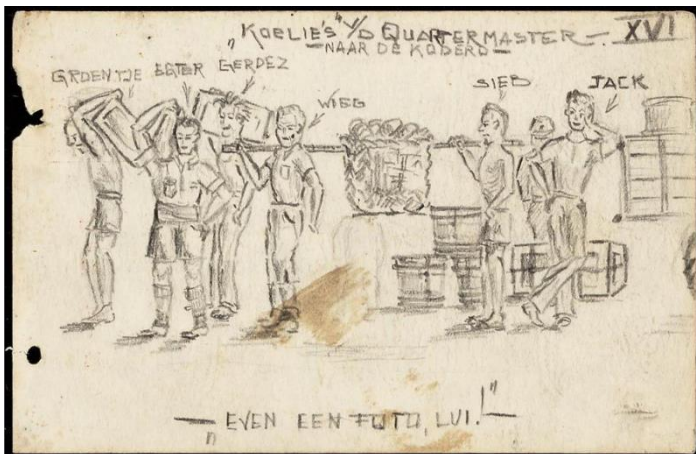 „KOELIE'S" V/D QUARTERMASTER - XVI
- NAAR DE KODERO -
GROENTJE EGTER GERDEZ
WIEG
SIEB
JACK
- „EVEN EEN FOTO, LUI!" -